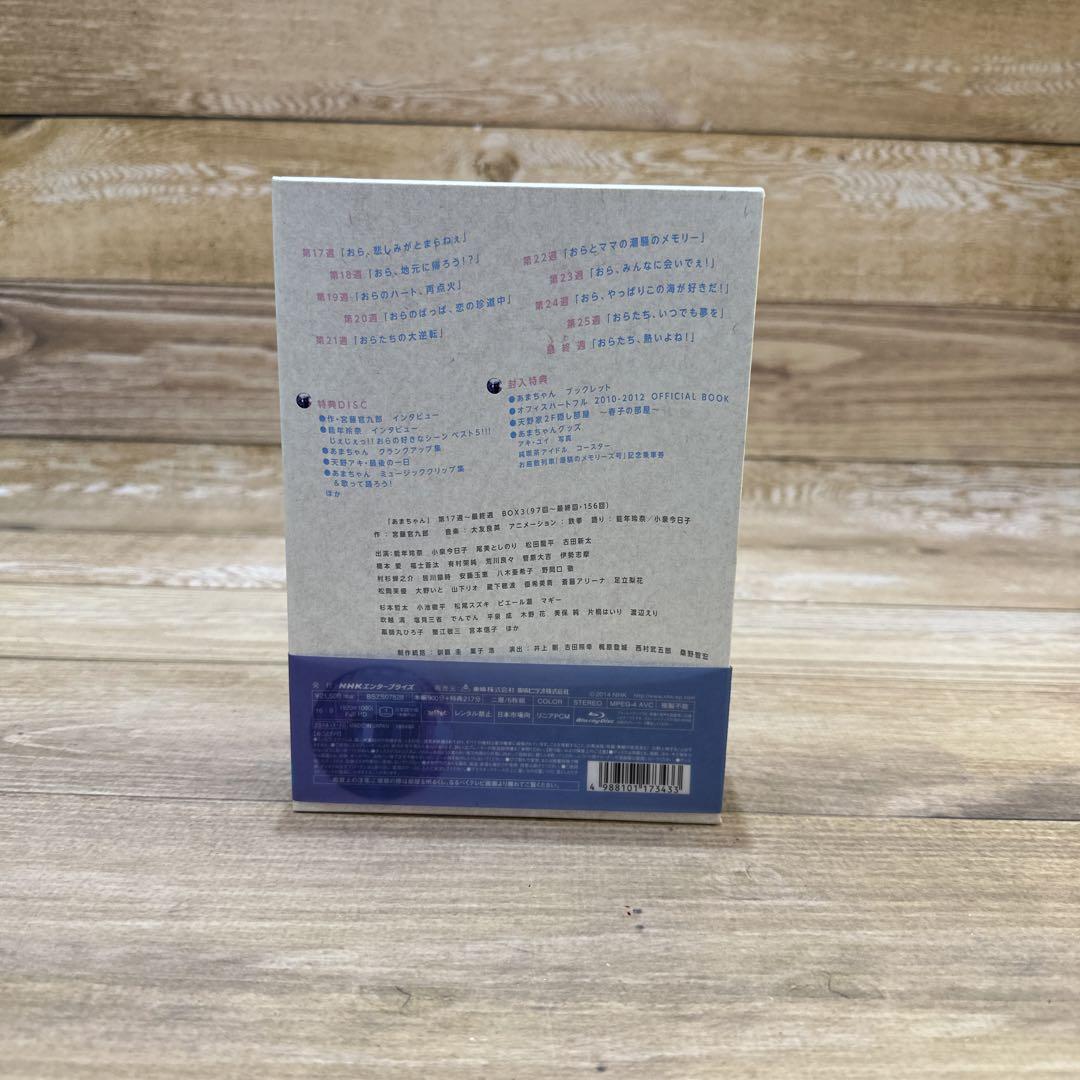 第17週「おら、悲しみがとまらねぇ」
第18週「おら、地元に帰ろう!?」
第19週「おらのハート、再点火」
第20週「おらのばっぱ、恋の珍道中」
第21週「おらたちの大逆転」
第22週「おらとママの潮騒のメモリー」
第23週「おら、みんなに会いでぇ!」
第24週「おら、やっぱりこの海が好きだ!」
第25週「おらたち、いつでも夢を」
最終週「おらたち、熱いよね!」
特典DISC
●作・宮藤官九郎 インタビュー
●能年玲奈 インタビュー
じぇじぇっ!! おらの好きなシーン ベスト5!!!
●あまちゃん クランクアップ集
●天野アキ・最後の一日
●あまちゃん ミュージッククリップ集
&歌って踊ろう!
ほか
封入特典
●あまちゃん ブックレット
●オフィスハートフル 2010-2012 OFFICIAL BOOK
●天野家2F隠し部屋 〜春子の部屋〜
●あまちゃんグッズ
アキ・ユイ 写真
純喫茶アイドル コースター
お座敷列車「潮騒のメモリーズ号」記念乗車券
「あまちゃん」 第17週〜最終週 BOX3(97回〜最終回・156回)
作:宮藤官九郎 音楽:大友良英 アニメーション:鉄拳 語り:能年玲奈/小泉今日子
出演:能年玲奈 小泉今日子 尾美としのり 松田龍平 古田新太
橋本 愛 福士蒼汰 有村架純 荒川良々 菅原大吉 伊勢志摩
村杉蝉之介 皆川猿時 安藤玉恵 八木亜希子 野間口 徹
松岡茉優 大野いと 山下リオ 蔵下穂波 優希美青 斎藤アリーナ 足立梨花
杉本哲太 小池徹平 松尾スズキ ピエール瀧 マギー
吹越 満 塩見三省 でんでん 平泉 成 木野 花 美保 純 片桐はいり 渡辺えり
薬師丸ひろ子 蟹江敬三 宮本信子 ほか
制作統括:訓覇 圭 菓子 浩 演出:井上 剛 吉田照幸 梶原登城 西村武五郎 桑野智宏
NHKエンタープライズ
©2014 NHK
本編900分+特典217分 二層/5枚組 COLOR STEREO MPEG-4 AVC 複製不能
16:9 1920×1080i Full HD レンタル禁止 日本市場向 リニアPCM Blu-ray Disc
4 988101 173433